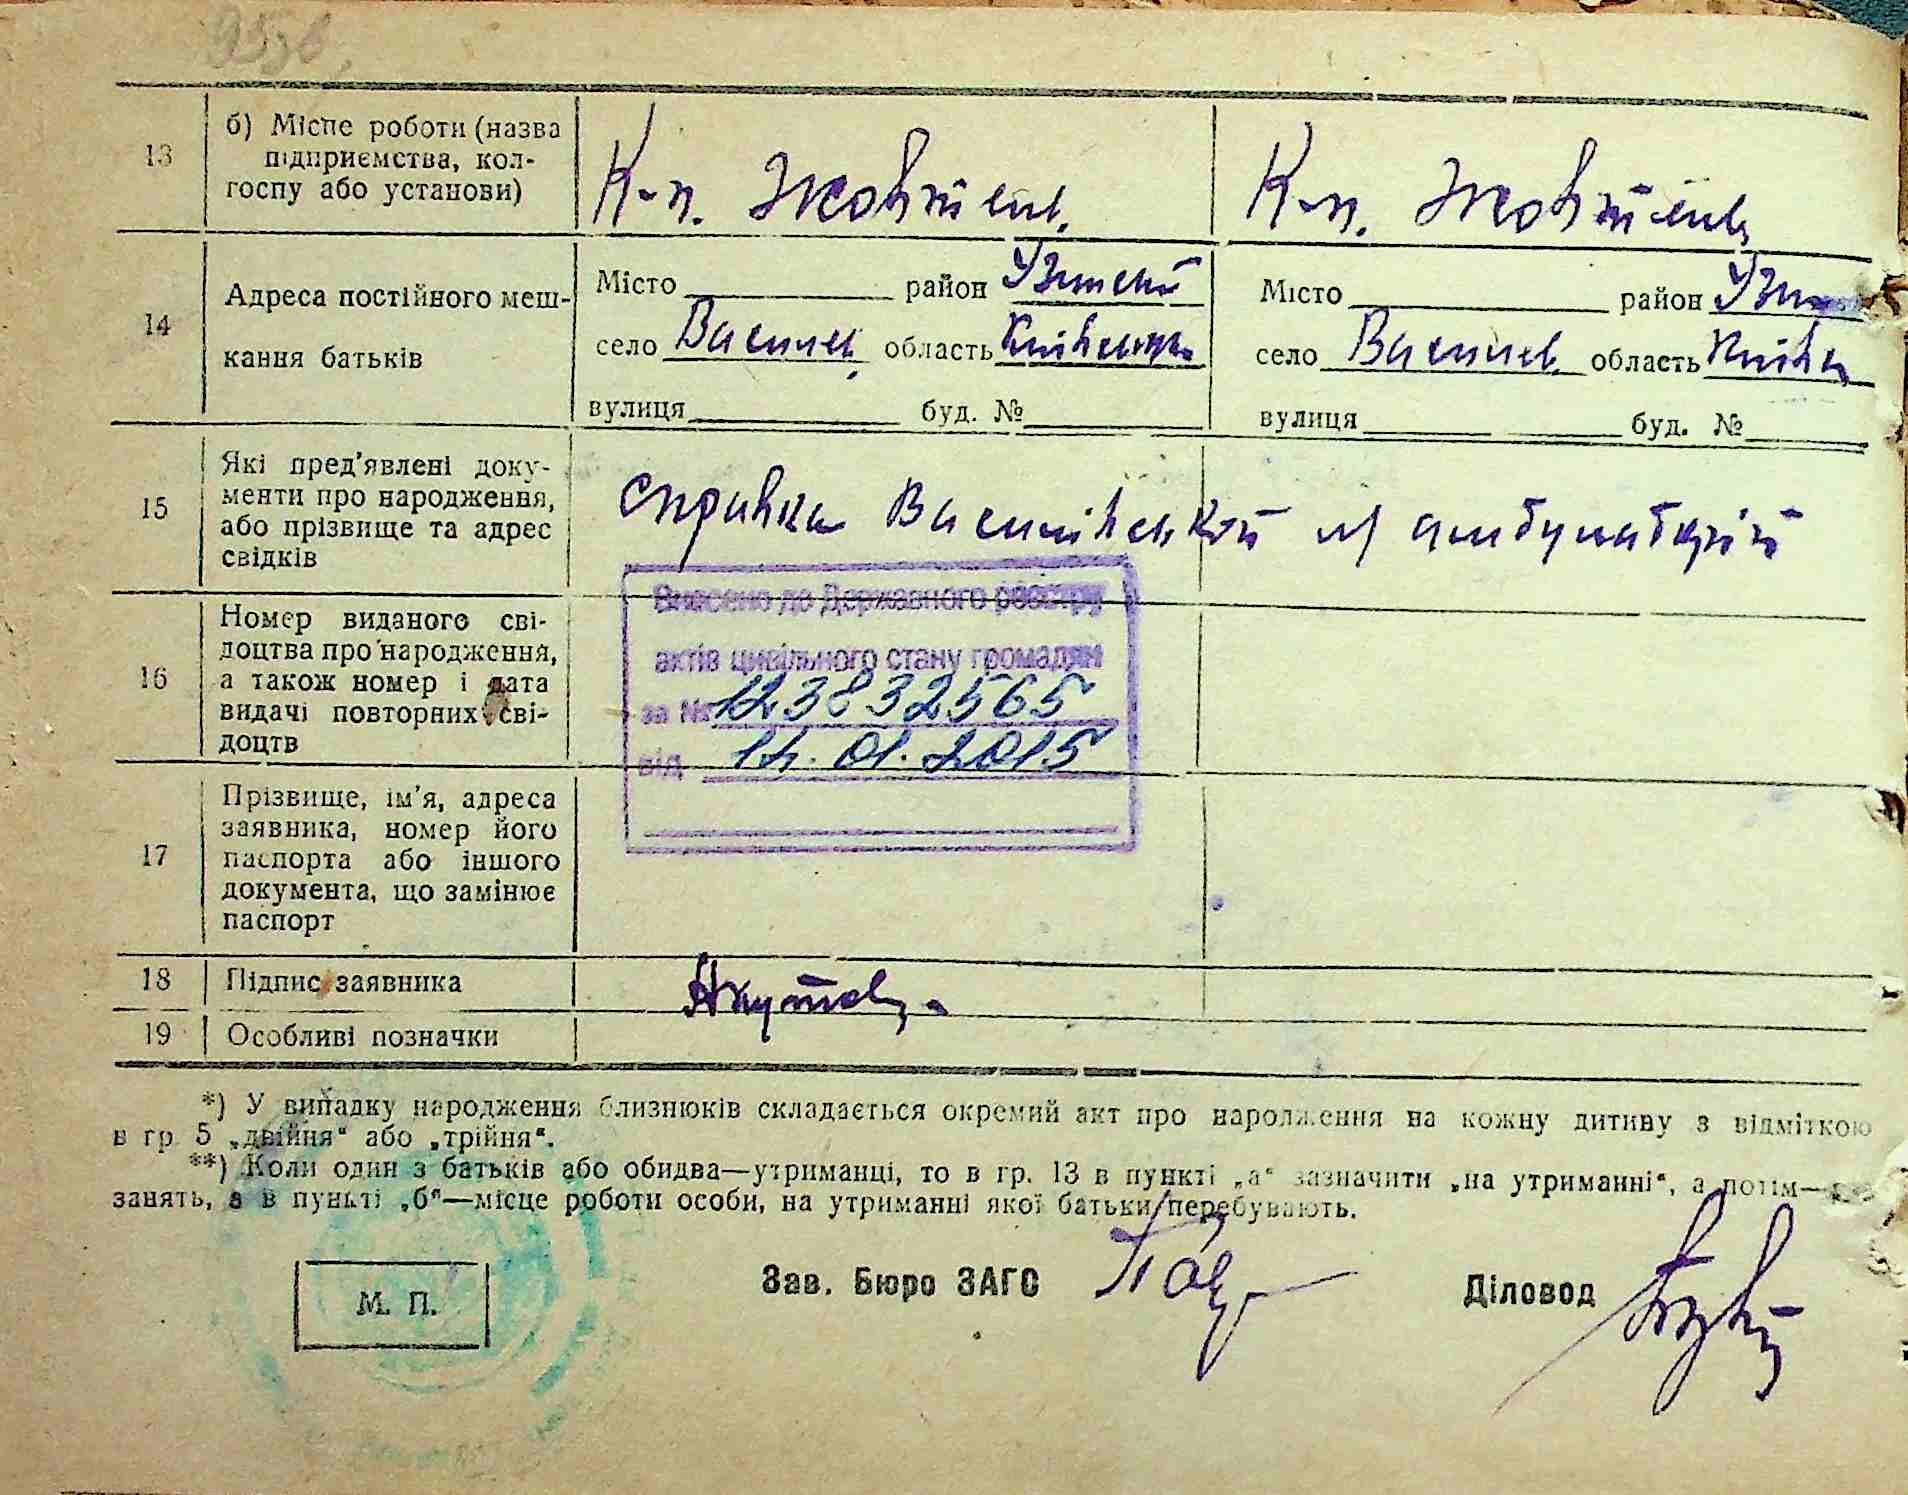 13
б) Місце роботи (назва
підприємства, кол-
госпу або установи)
К-п. Жовтень
К-п. Жовтень
14
Адреса постійного меш-
кання батьків
Місто район Узинский
село Василев область Київська
вулиця буд. №
Місто район Узин
село Василев область Київс
вулиця буд. №
15
Які пред'явлені доку-
менти про народження,
або прізвище та адрес
свідків
справка Василівської амбулаторії
16
Номер виданого сві-
доцтва про народження,
а також номер і дата
видачі повторних сві-
доцтв
Внесено до Державного реєстру
актів цивільного стану громадян
за № 123832565
від 14.01.2015
17
Прізвище, ім'я, адреса
заявника, номер його
паспорта або іншого
документа, що замінює
паспорт
18
Підпис заявника
19
Особливі позначки
*) У випадку народження близнюків складається окремий акт про народження на кожну дитину з відміткою
в гр 5 „двійня“ або „трійня“.
**) Коли один з батьків або обидва—утриманці, то в гр. 13 в пункті „а“ зазначити „на утриманні“, а потім—
занять, а в пункті „б“—місце роботи особи, на утриманні якої батьки перебувають.
М. П.
Зав. Бюро ЗАГС
Діловод